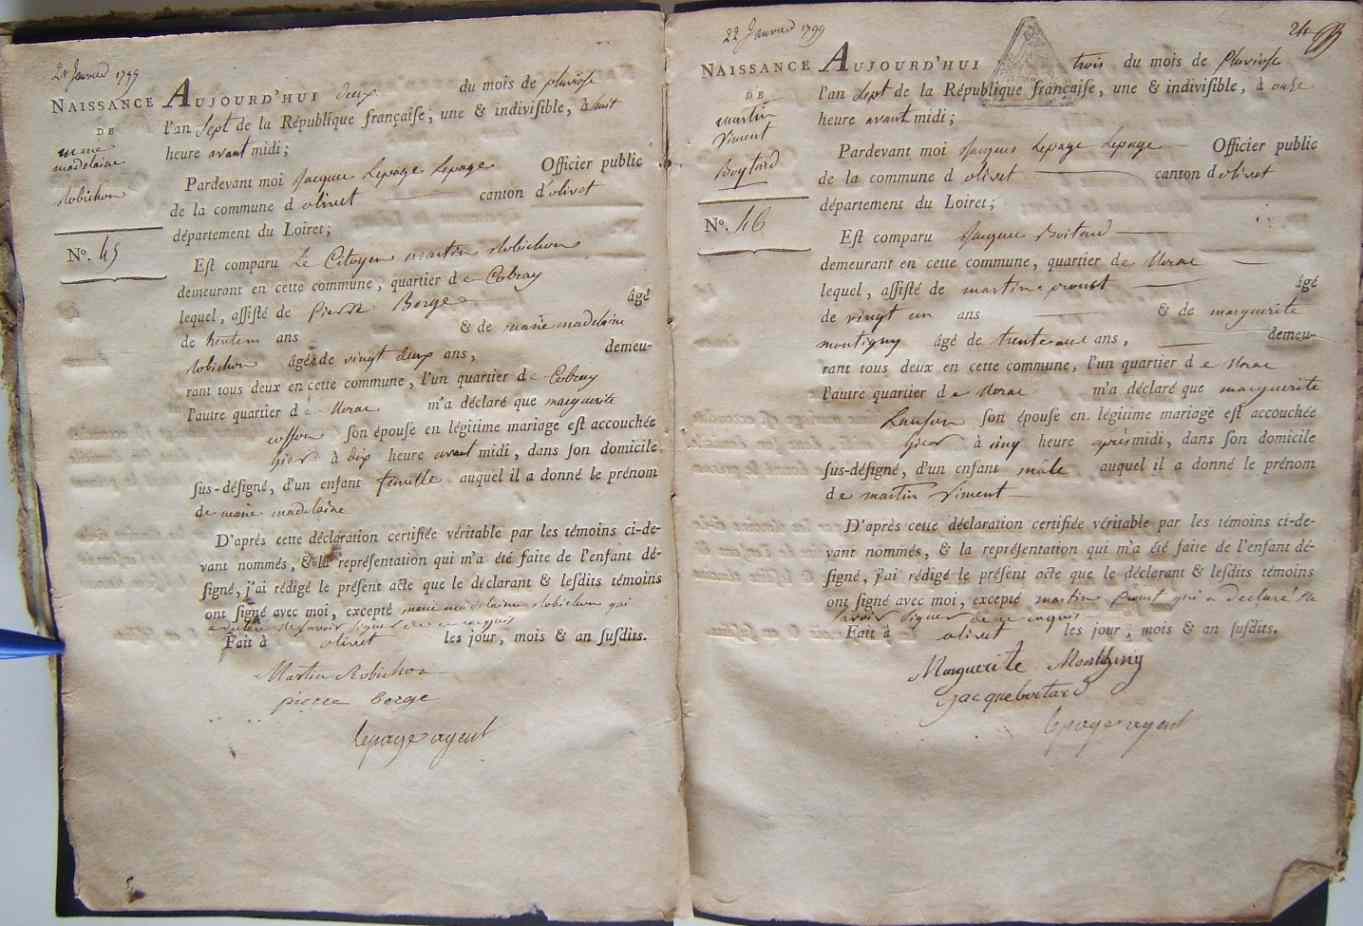 21 Janvier 1799
NAISSANCE
DE
marie
madelaine
Robichon
N°. 45
AUJOURD'HUI deux du mois de pluviose
l'an sept de la République françaiſe, une & indiviſible, à huit
heure avant midi;
Pardevant moi Jacque Lepage Lepage Officier public
de la commune d olivet canton d'olivet
département du Loiret;
Eſt comparu Le Citoyen martin Robichon
demeurant en cette commune, quartier de Cobray
lequel, aſſiſté de pierre Borge âgé
de trente un ans & de marie madelaine
Robichon âgée de vingt deux ans, demeu-
rant tous deux en cette commune, l'un quartier de Cobray
l'autre quartier de Morae m'a déclaré que marguerite
cosson ſon épouſe en légitime mariage eſt accouchée
hier à dix heure avant midi, dans ſon domicile
ſus-déſigné, d'un enfant femelle auquel il a donné le prénom
de marie madelaine
D'après cette déclaration certifiée véritable par les témoins ci-de-
vant nommés, & la repréſentation qui m'a été faite de l'enfant dé-
ſigné, j'ai rédigé le préſent acte que le déclarant & leſdits témoins
ont ſigné avec moi, excepté marie madelaine Robichon qui
a déclaré ne savoir signer de ce enquis
Fait à olivet les jour, mois & an ſuſdits.
Martin Robichon
pierre borge
lepage agent
22 Janvier 1799
24
NAISSANCE
DE
martin
Viment
Boytard
N°. 46
AUJOURD'HUI trois du mois de Pluviose
l'an sept de la République françaiſe, une & indiviſible, à onze
heure avant midi;
Pardevant moi Jacques Lepage Lepage Officier public
de la commune d olivet canton d'olivet
département du Loiret;
Eſt comparu Jacque Boitard
demeurant en cette commune, quartier de Morae
lequel, aſſiſté de martin proust âgé
de vingt un ans & de marguerite
montigny âgé de trente ans, demeu-
rant tous deux en cette commune, l'un quartier de Morae
l'autre quartier de Morae m'a déclaré que marguerite
Lanson ſon épouſe en légitime mariage eſt accouchée
hier à cinq heure après midi, dans ſon domicile
ſus-déſigné, d'un enfant mâle auquel il a donné le prénom
de martin Viment
D'après cette déclaration certifiée véritable par les témoins ci-de-
vant nommés, & la repréſentation qui m'a été faite de l'enfant dé-
ſigné, j'ai rédigé le préſent acte que le déclarant & leſdits témoins
ont ſigné avec moi, excepté martin proust qui a déclaré ne
savoir signer de ce enquis
Fait à olivet les jour, mois & an ſuſdits.
Marguerite Montigny
Jacque boitard
lepage agent